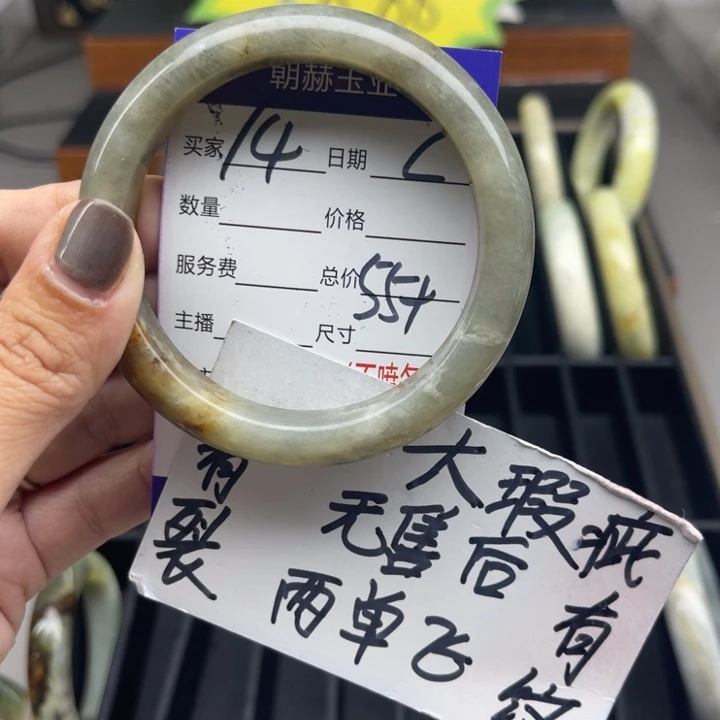 朝赫玉业
买家 14 日期
数量 价格
服务费 总价 554
主播 尺寸
大瑕疵有纹
有裂
无售后
两单飞